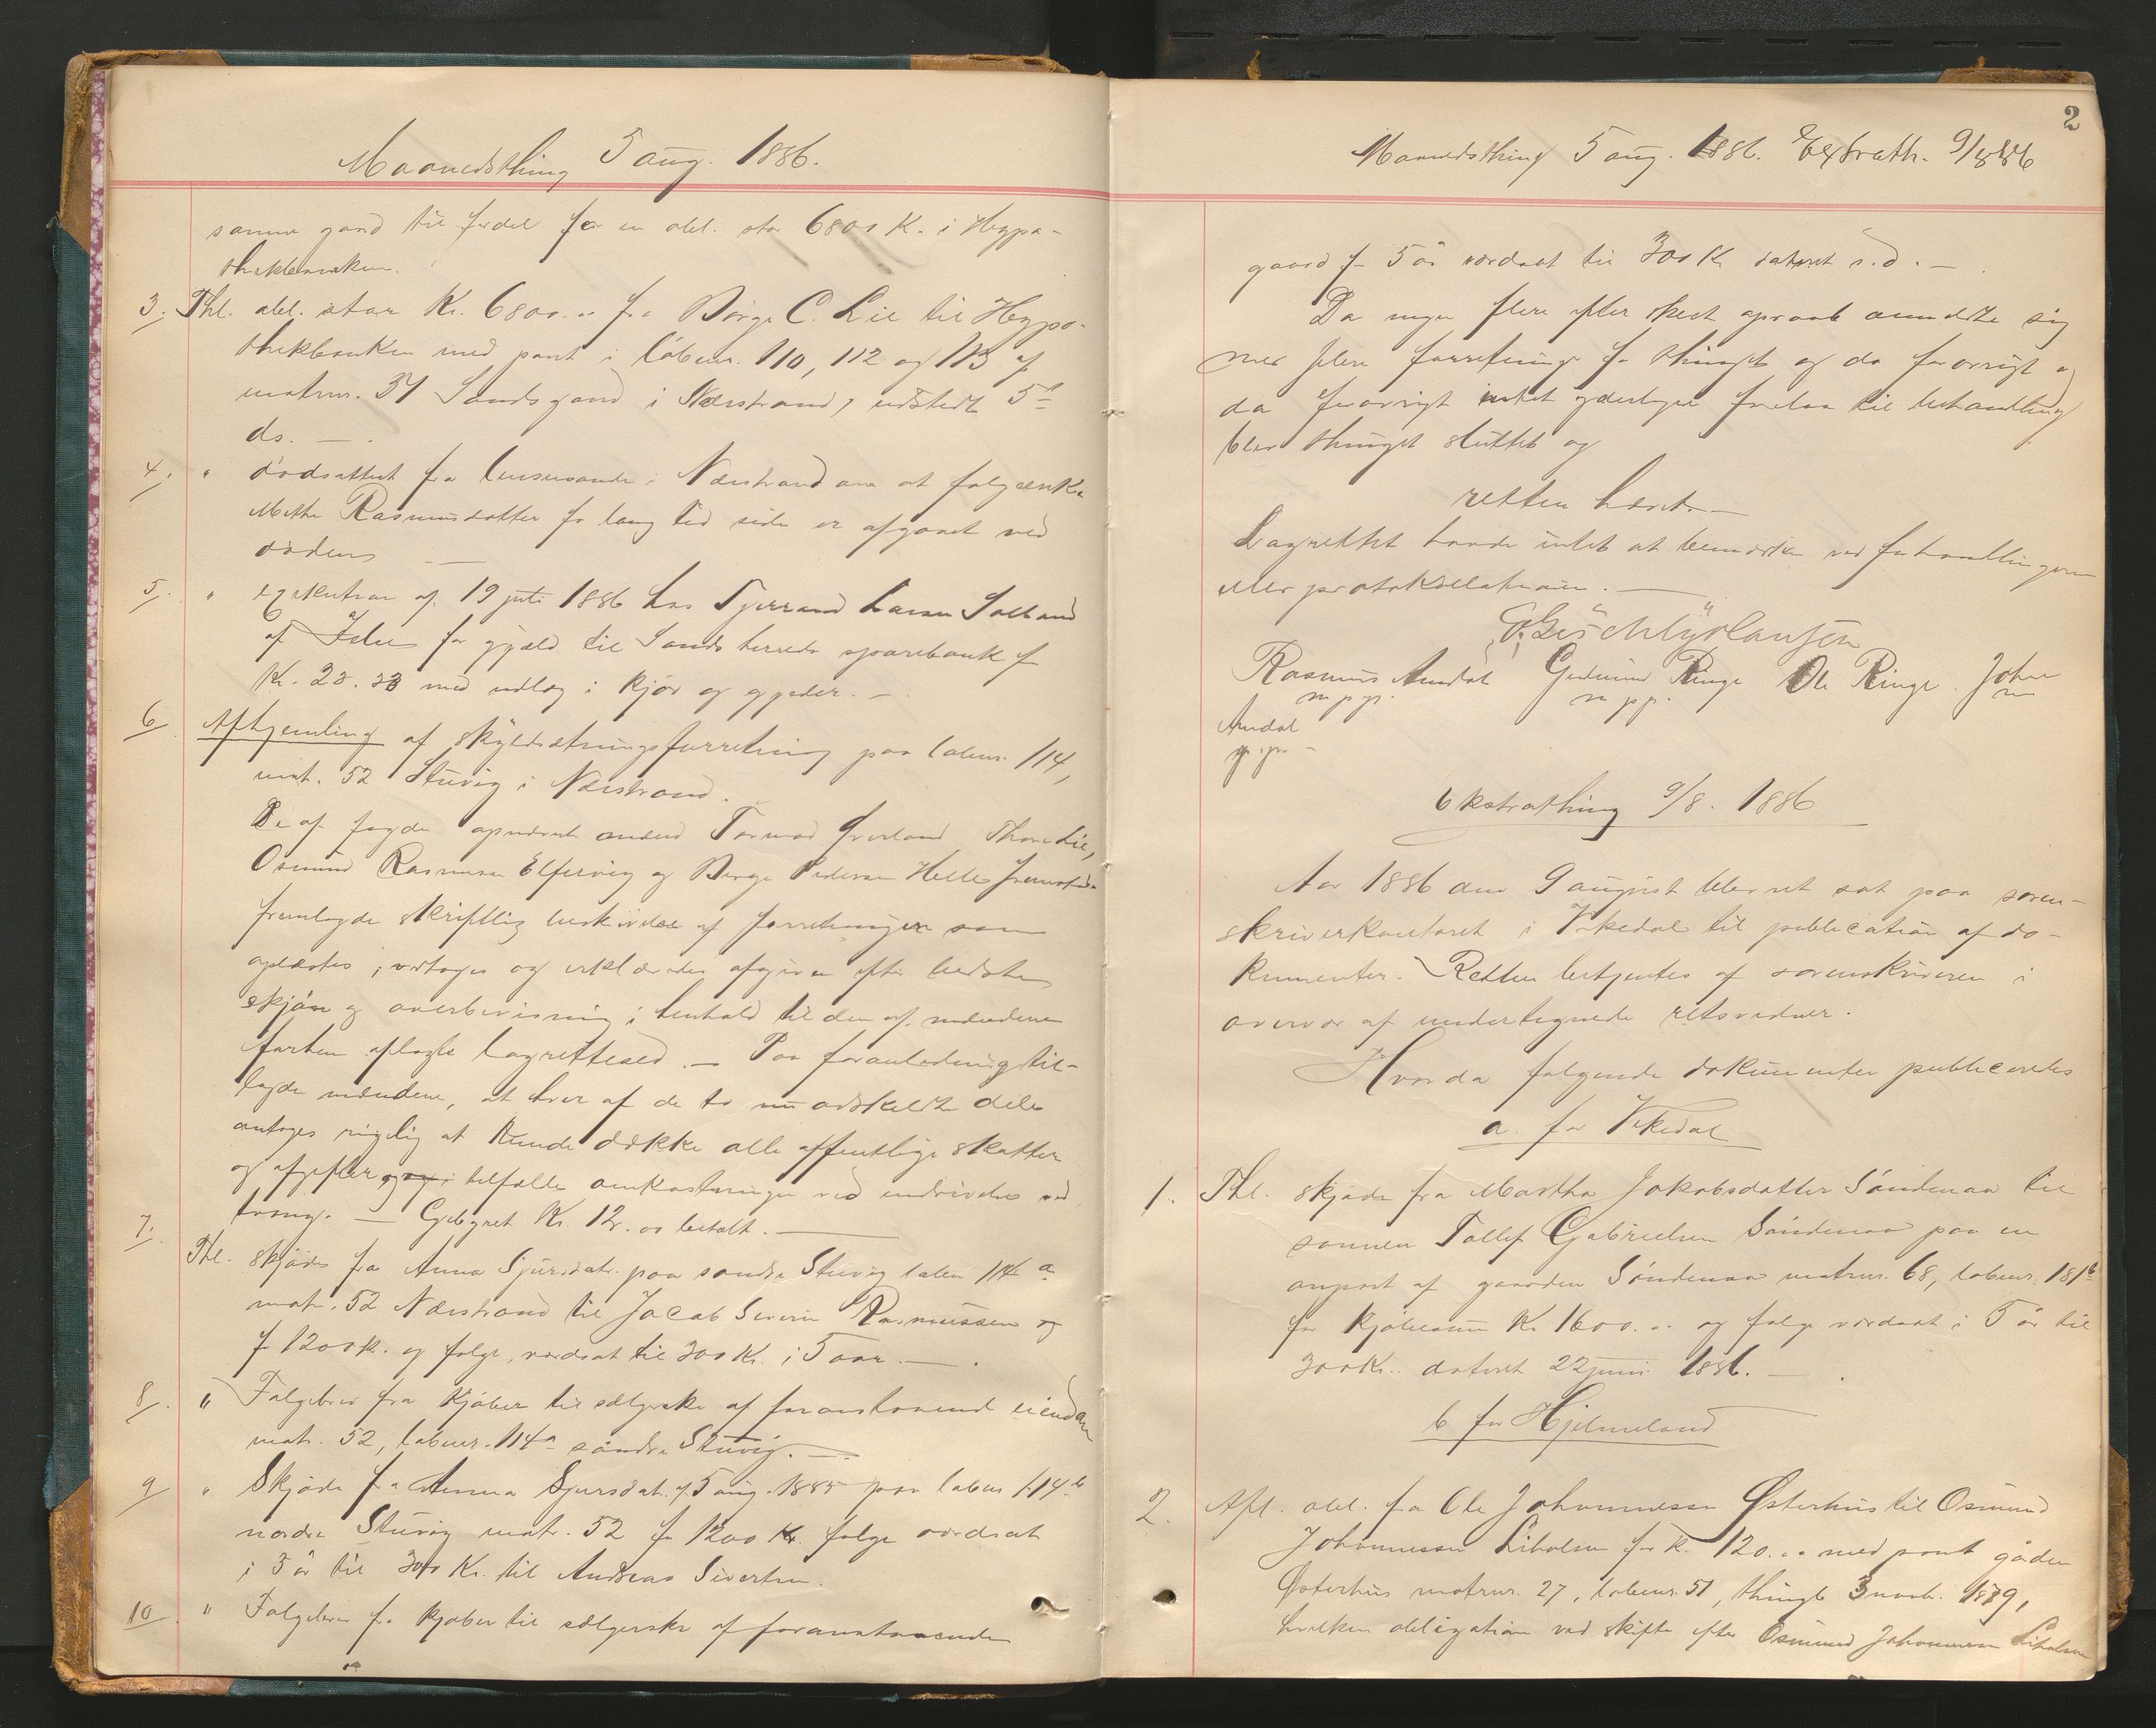 Maanedsthing 5 aug. 1886.
samme gaard til fordel for en obl. stor 6800 K. i Hypo-
thekbanken.
3. Thl. obl. stor Kr. 6800.00 fra Børge C. Lie til Hypo-
thekbanken med pant i løbenr. 110, 112 og 113 af
matrnr. 37 Sandsgaard i Nærstrand, udstedt 5te
ds. —
4. " dødsattest fra lensmanden i Nærstrand om at folgeenke
Mette Rasmusdatter for lang tid siden er afgaaet ved
døden
5. " exekution af 19 juli 1886 hos Sjurand Larsen Salland
af for gjæld til Sands herreds sparebank f
Kr. 28.33 med udlæg i kjør og gjeder. —
6 Afhjemling af skyldsætningsforretning paa løbenr. 114,
mat. 52 Stuvig i Nærstrand.
De af fogden opnævnt mænd Tormod Thore Lie,
Osmund Rasmusen Elfervig og Børge Pedersen Helle
fremlagde skriftlig beskrivelse af forretningen som
oplæstes, vedtoges og erklæredes afgiven efter bedste
skjøn og overbevisning i henhold til den af mændene
forhen aflagte lagretteed. — Paa foranledning til-
lagde mændene, at hver af de to nu adskildte dele
antages rigelig at kunde dække alle offentlige skatter
og afgifter, og i tilfælde omkostninger ved inddrivelse ved
tvang. — Gebyret Kr. 12.00 betalt. —
7. Thl. skjøde fra Anna Sjursdatr. paa søndre Stuvig løben 114 a
matr. 52 Nærstrand til Jacob Severin Rasmussen
f 1200 K. og folge, værdsat til 300 Kr. i 5 aar. —
8. " Folgebrev fra kjøber til sælgerske af foranstaaende eiendom
matr. 52, løbenr. 114a søndre Stuvig. —
9 " Skjøde fra Anna Sjursdat. af 5 aug. 1885 paa løben 114 b
nordre Stuvig matr. 52 for 1200 Kr. folge værdsat
i 5 år til 300 Kr. til Andreas Sivertsen.
10 " Folgebrev fra kjøber til sælgerske af foranstaaende
2
Maanedsthing 5 aug. 1886. Extrath. 9/8 86
gaard f 5 år værdsat til 300 K dateret s.d. —
Da ingen flere efter skeet opraab anmeldte sig
med flere forretninger for thinget og da forøvrigt og
da forøvrigt intet yderligere forelaa til behandling
blev thinget sluttet og
retten hævet. —
Lagrettet havde intet at bemærke ved forhandlingerne
eller protokollationen. —
Rasmus Amdal Gudmund Ringe Ole Ringe John
m.p.p. m.p.p.
Amdal
Ekstrathing 9/8. 1886
Aar 1886 den 9 august blev ret sat paa soren-
skriverkontoret i Vikedal til publication af do-
kumenter. Retten betjentes af sorenskriveren i
overvær af undertegnede retsvidner.
Hvorda følgende dokumenter publiceredes
a. for Vikedal
1. Thl. skjøde fra Martha Jakobsdatter Søndenaa til
sønnen Tollef Gabrielsen Søndenaa paa en
anpart af gaarden Søndenaa matrnr. 68, løbenr. 181 b
for kjøbesum Kr 1600.00 og folge værdsat i 5 år til
300 Kr. dateret 22 juni 1886. —
b for Hjelmeland
2. Afl. obl. fra Ole Johannessen Østerhus til Osmund
Johannessen Liholmen for K. 120.00 med pant gården
Østerhus matrnr. 27, løbenr. 51, thingl. 3 novb. 1879,
hvilken obligation ved skifte efter Osmund Johannessen Liholmen